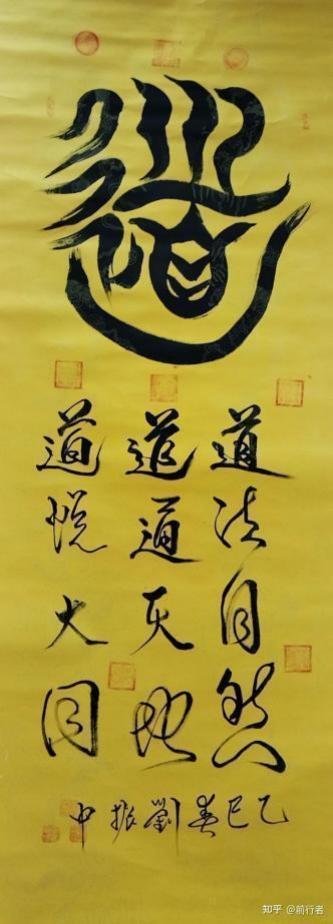 道
道法自然
道通天地
道悦大同
乙巳春劉振中
知乎 @前行者